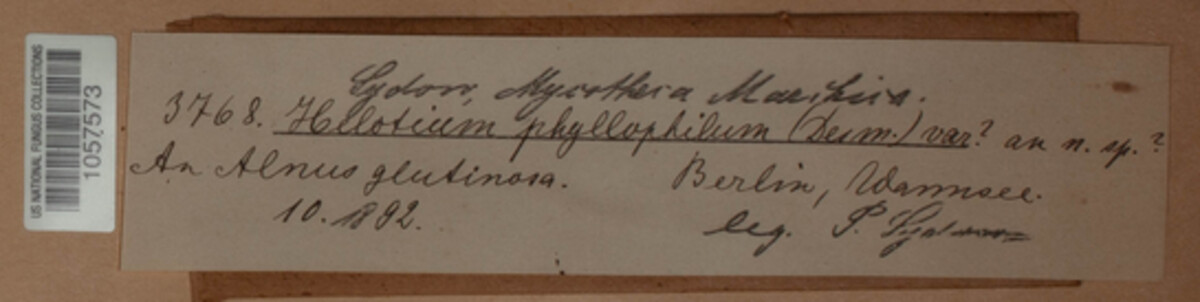 US NATIONAL FUNGUS COLLECTIONS
1057573
Sydow, Mycotheca Marchica.
3768. Helotium phyllophilum (Desm.) var? an n. sp.?
An Alnus glutinosa. Berlin, Wannsee.
10. 1892. leg. P. Sydow